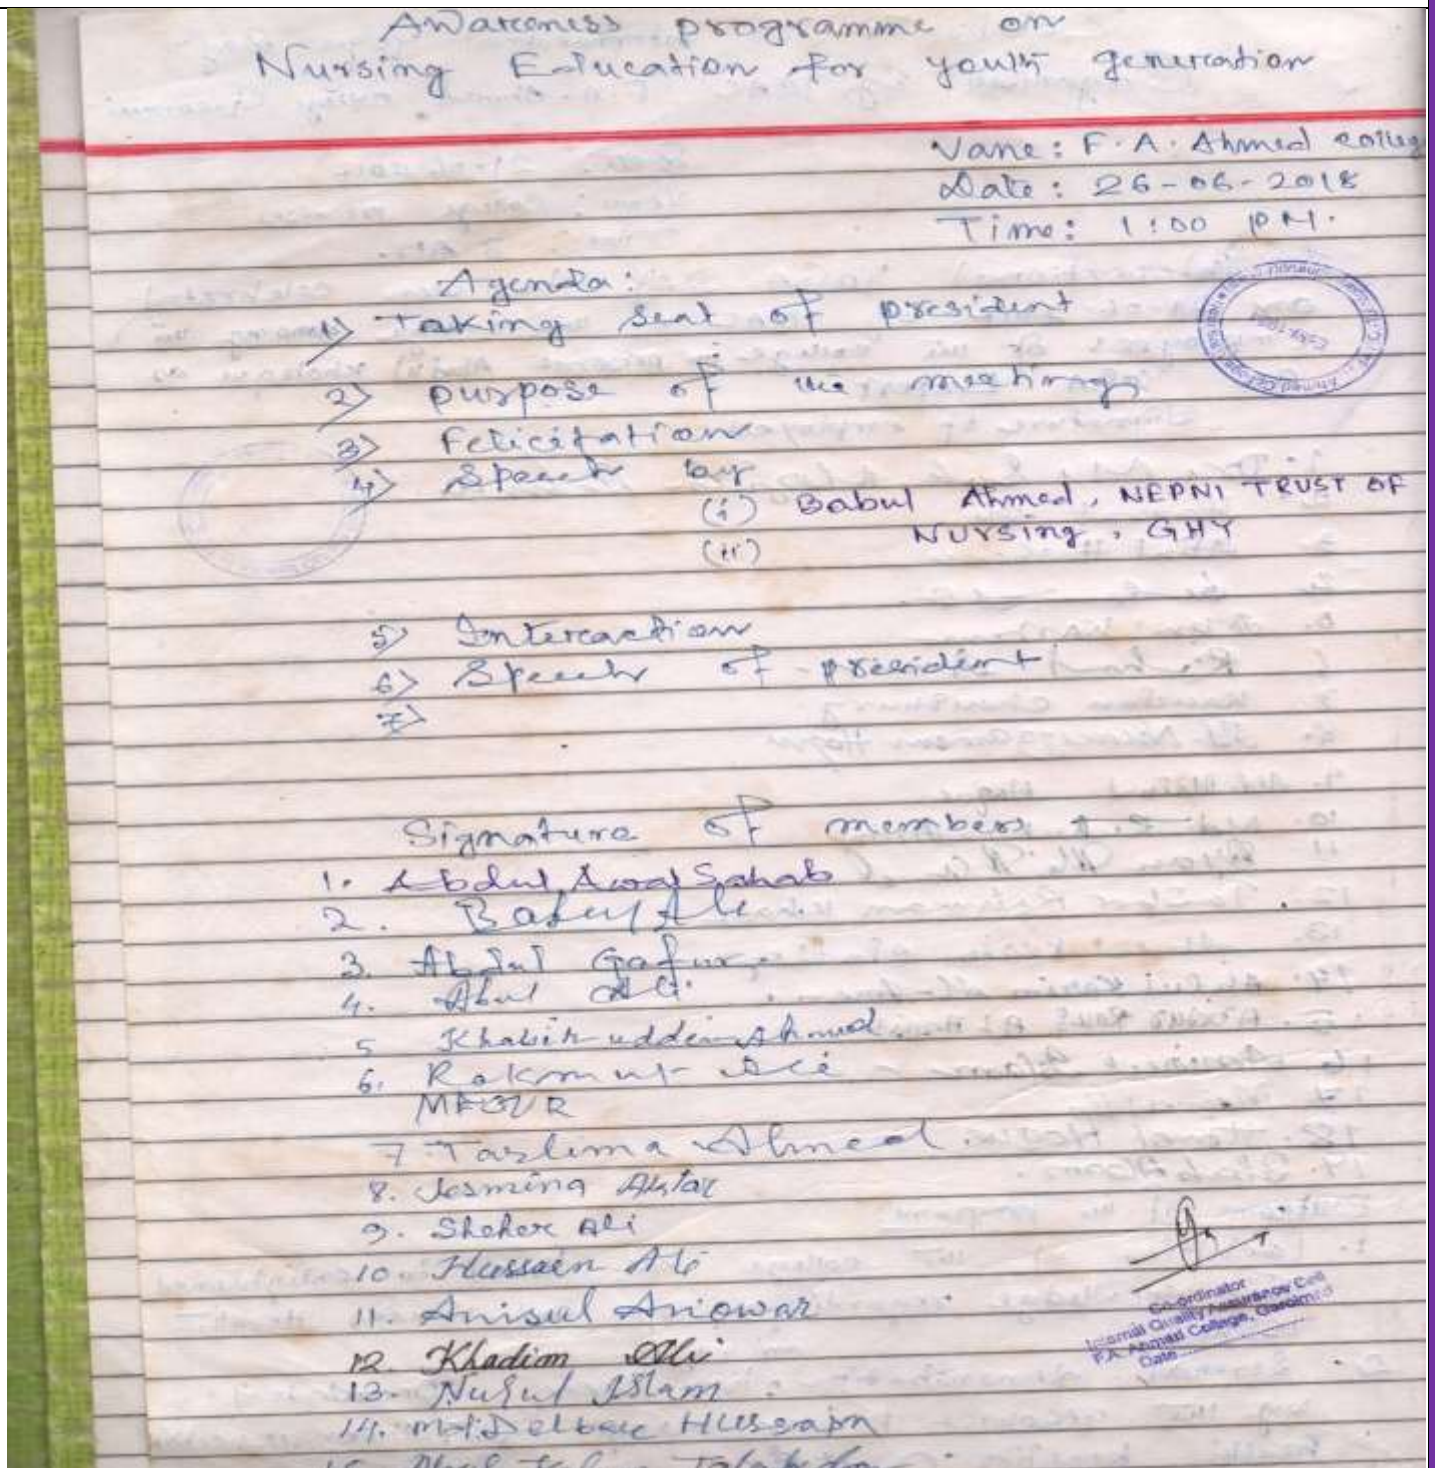 Awareness programme on
Nursing Education for youth generation
Vane: F. A. Ahmed college
Date: 26-06-2018
Time: 1:00 PM.
Agenda:
1) Taking seat of president
2) purpose of the meeting
3) Felicitation
4) Speech by
(i) Babul Ahmed, NEPNI TRUST OF
Nursing, GHY
(ii)
5) Interaction
6) Speech of president
7)
Signature of members
1. Abdul Awal Sahab
2. Ali
3. Abdul Gafur
4. Abul Ali
5 Khabir uddin Ahmed
6. Rakmut Ali
7 Taslima Ahmed
8. Jesmina Aktar
9. Sheher Ali
10. Hussain Ali
11. Anisul Anowar
12 Khadim Ali
13. Nurul Islam
14. Md. Delbar Hussain
15.
Co-ordinator
Internal Quality Assurance Cell
F.A. Ahmed College, Garoimari
Date